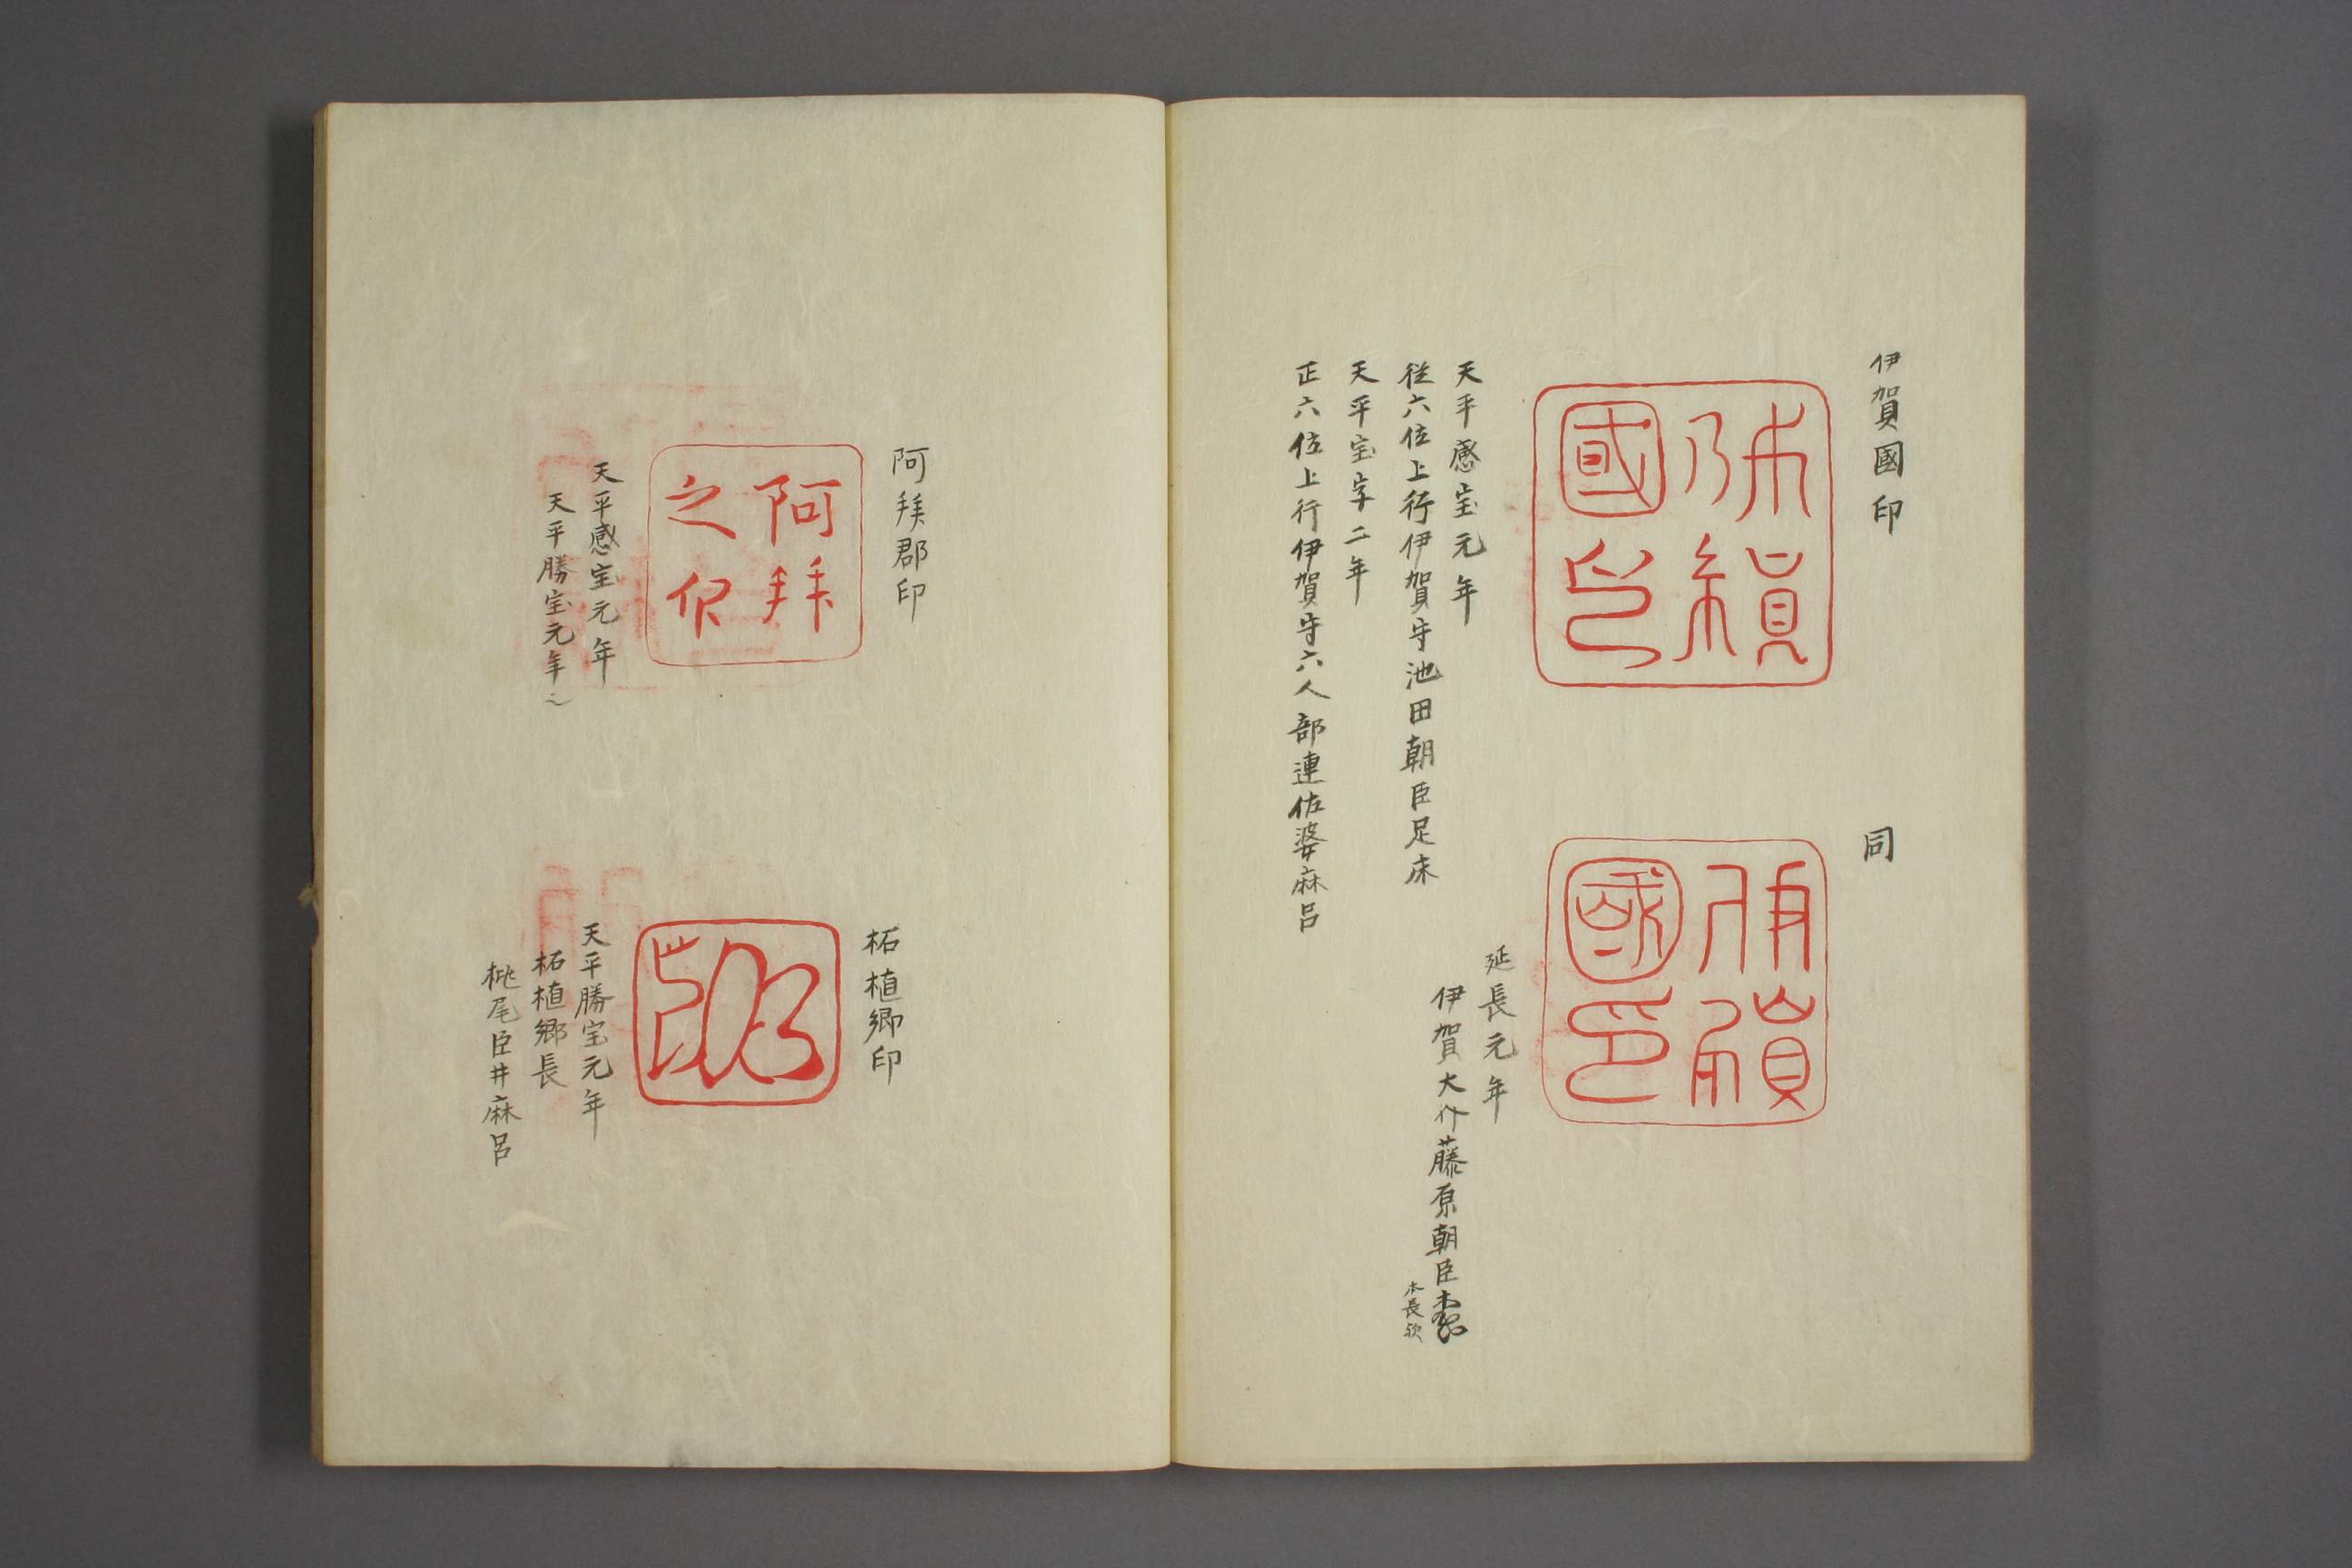 伊賀國印
天平感宝元年
従六位上行伊賀守池田朝臣足床
天平宝字二年
正六位上行伊賀守六人部連佐婆麻呂
同
延長元年
伊賀大介藤原朝臣
本長歟
阿拝郡印
阿拝
之印
天平感宝元年
天平勝宝元年
柘植郷印
天平勝宝元年
柘植郷長
桃尾臣井麻呂